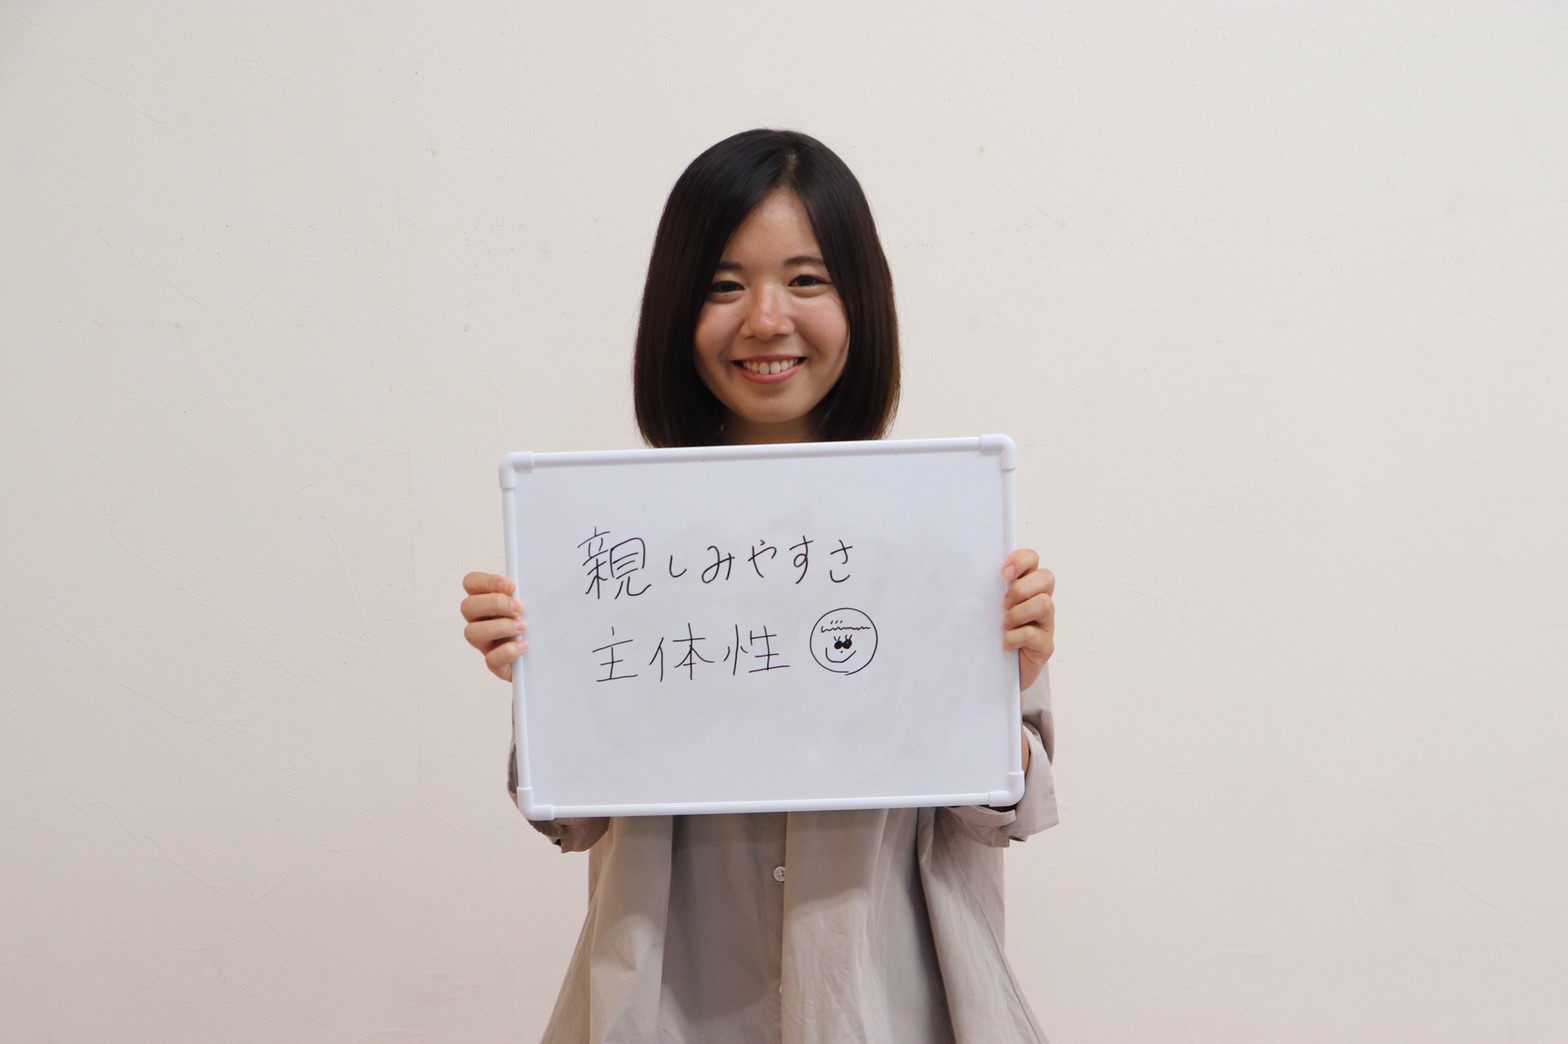 親しみやすさ
主体性